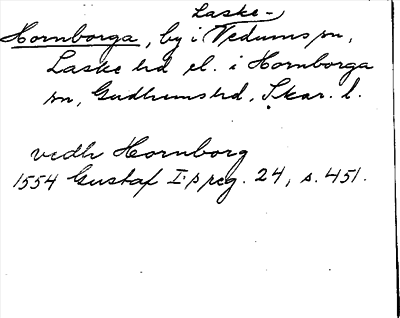 Laske-
Hornborga, by i Vedums sn,
Laske hd el. i Hornborga
sn, Gudhems hd, Skar. l.
vedh Hornborg
1554 Gustaf I:s reg. 24, s. 451.